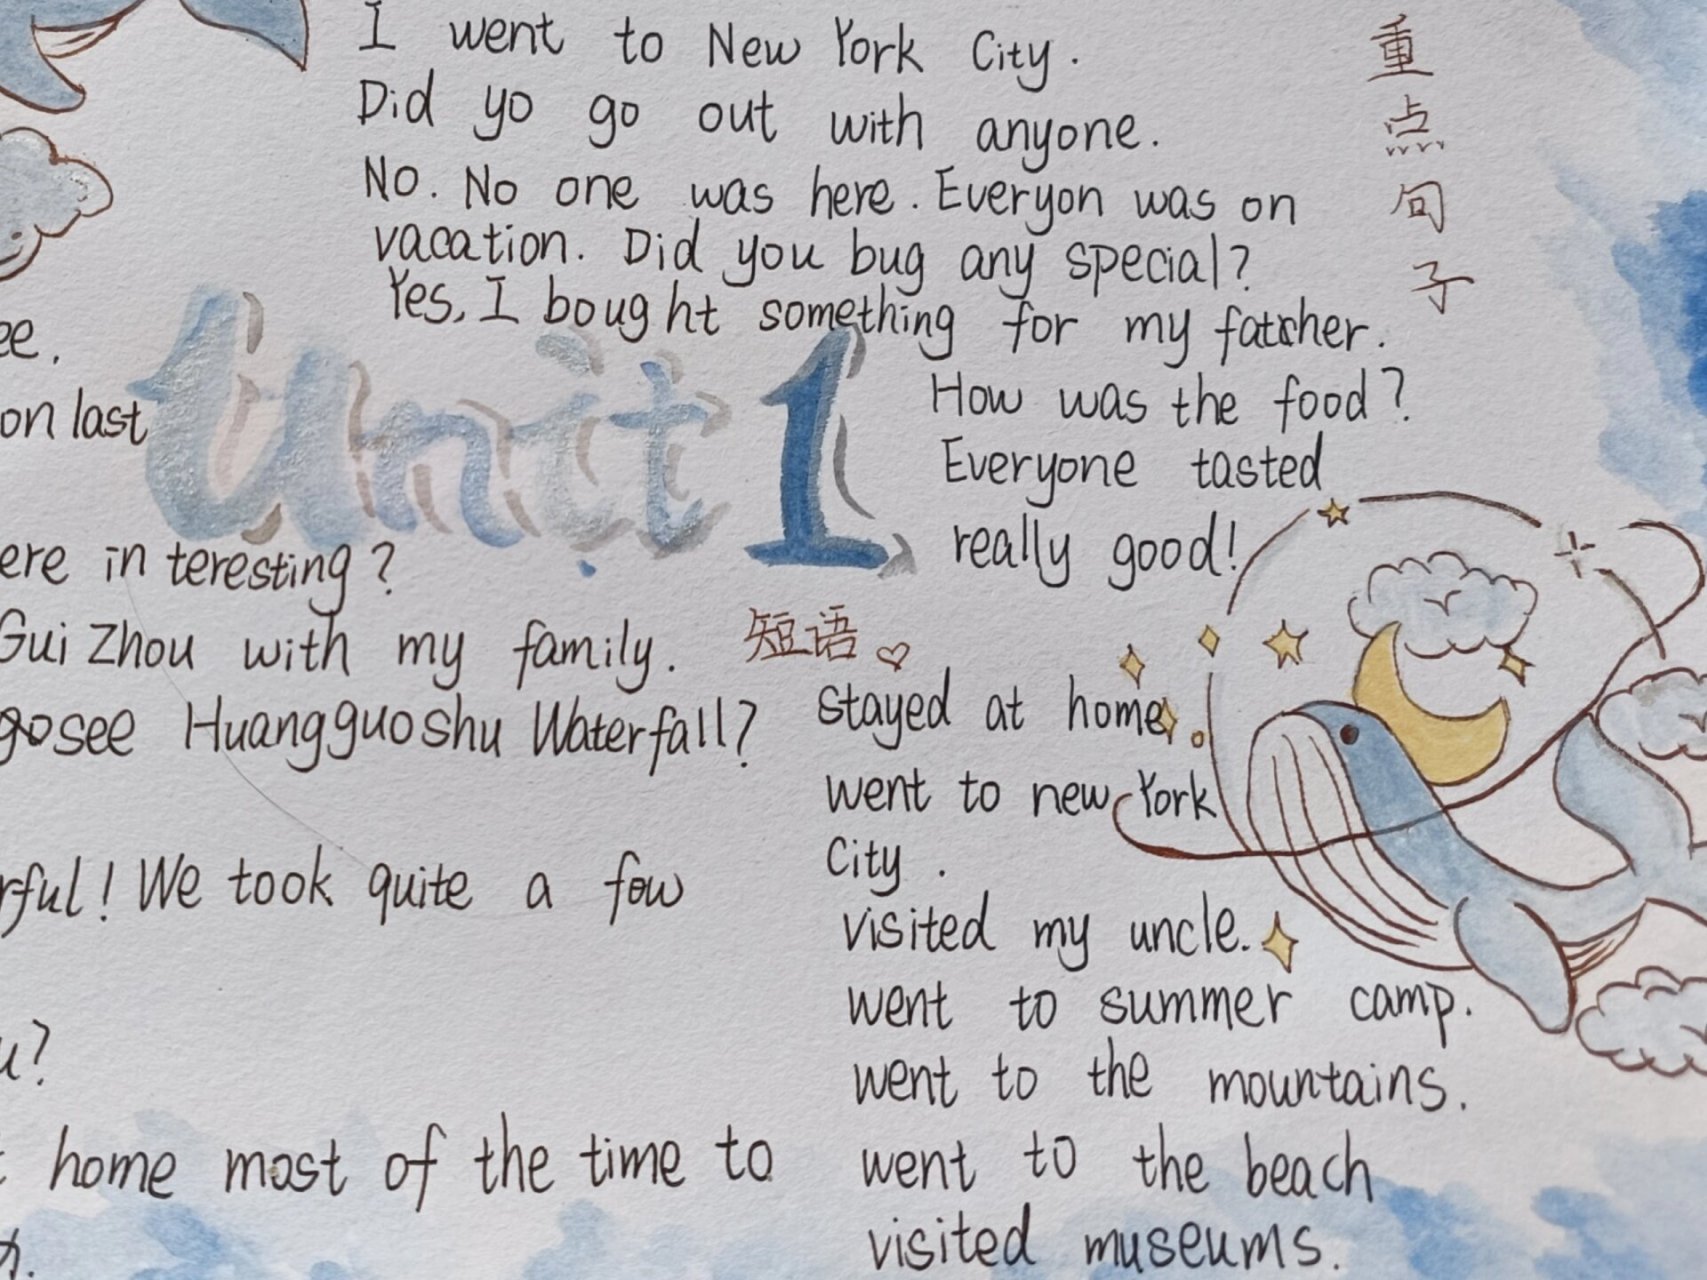 I went to New York City.
Did yo go out with anyone.
No. No one was here. Everyon was on
vacation. Did you bug any special?
Yes, I bought something for my fatcher.
How was the food?
Everyone tasted
really good!
重点句子
Unit 1
ee.
on last
ere in teresting?
Gui Zhou with my family.
go see Huangguoshu Waterfall?
rful! We took quite a few
u?
home most of the time to
短语
stayed at home.
went to new York
City.
visited my uncle.
went to summer camp.
went to the mountains.
went to the beach
visited museums.